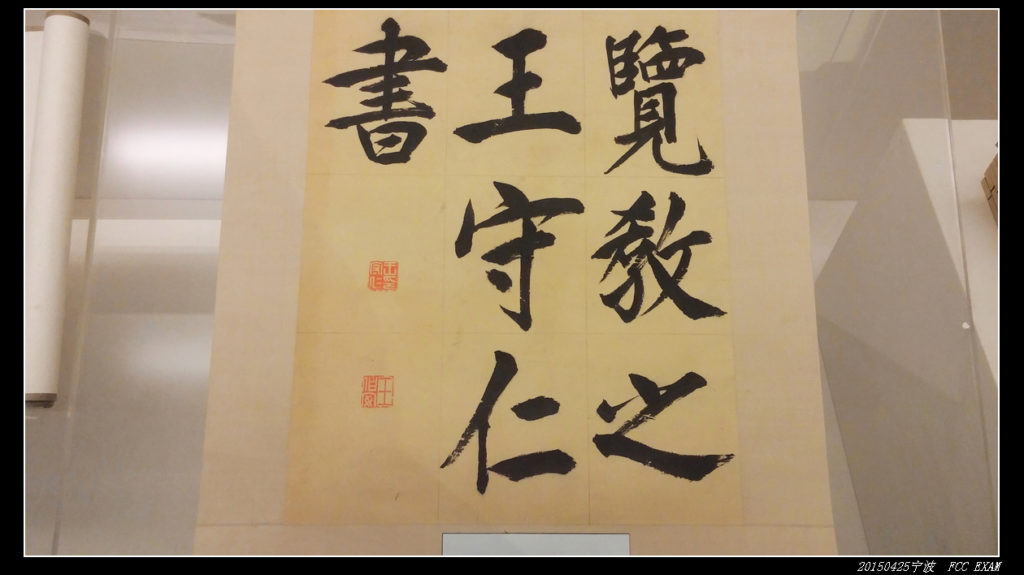 覽教之
王守仁
書
20150425宁波 FCC EXAM